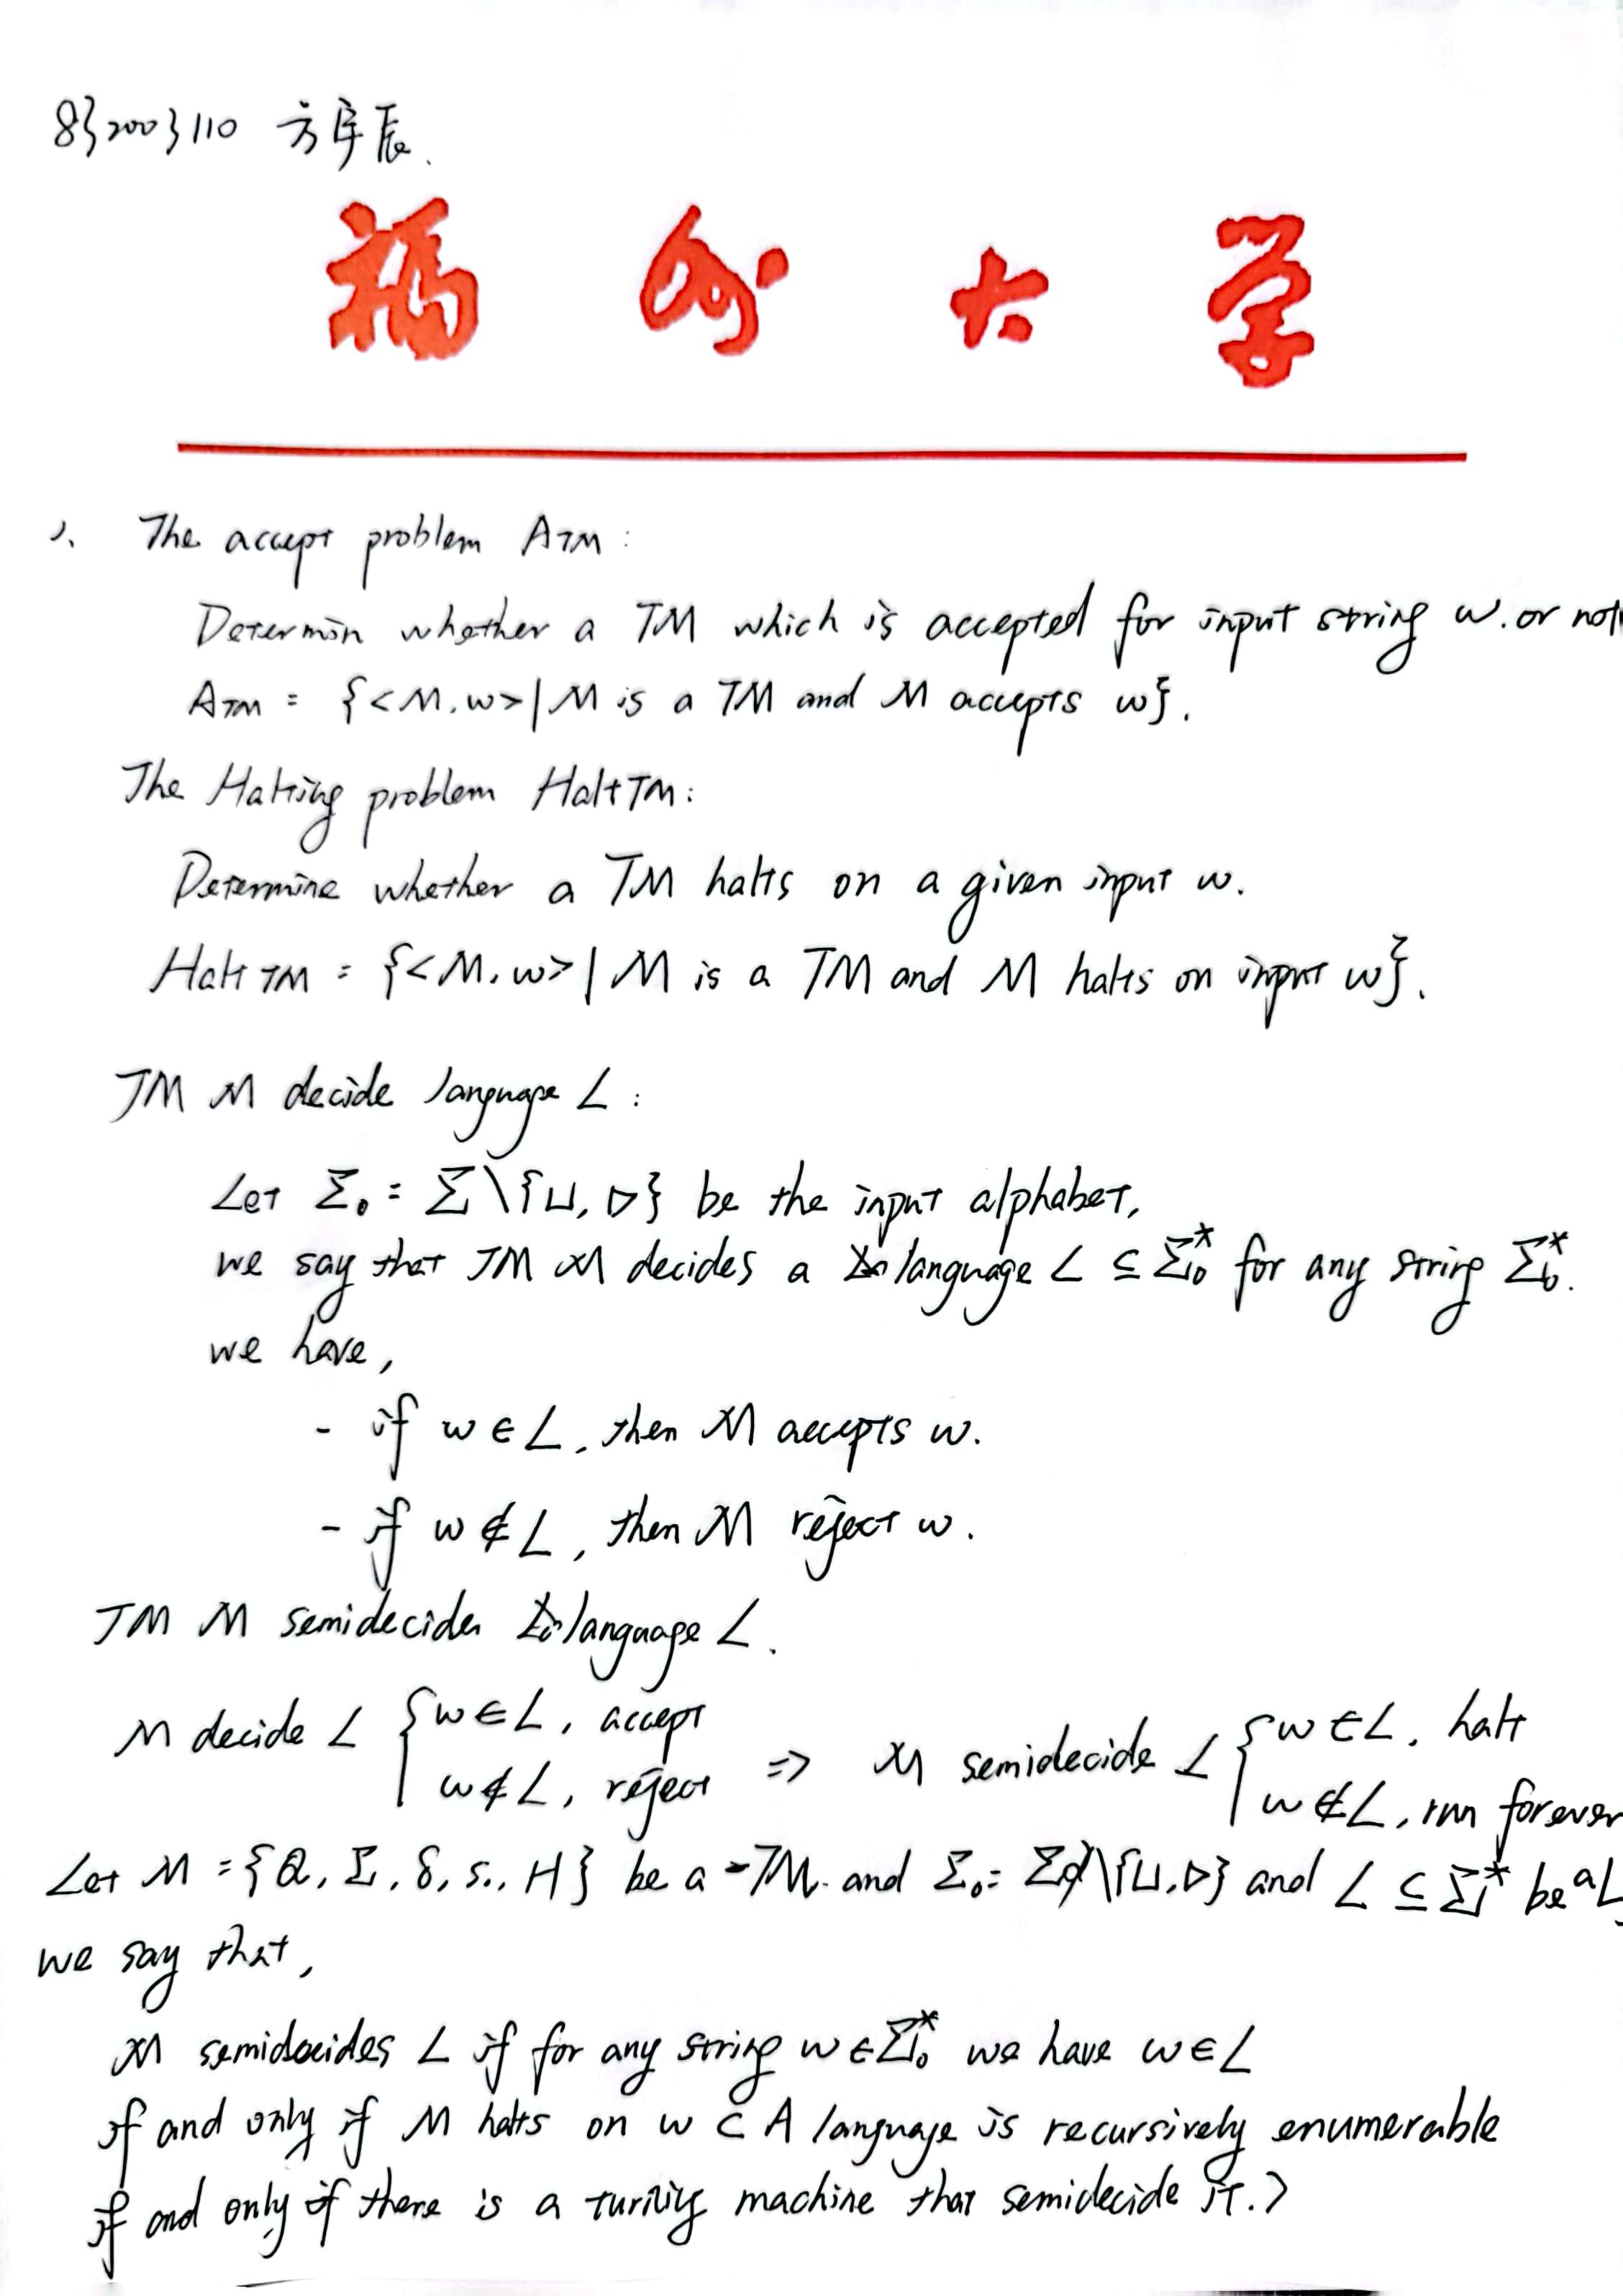 832003110 方宇辰.
福州大学
1. The accept problem ATM:
Determin whether a TM which is accepted for input string w. or not
ATM = {<M, w> | M is a TM and M accepts w}.
The Halting problem HaltTM:
Determine whether a TM halts on a given input w.
HaltTM = {<M, w> | M is a TM and M halts on input w}.
TM M decide language L:
Let Σ₀ = Σ\{⊔, ▷} be the input alphabet,
we say that TM M decides a language L ⊆ Σ₀* for any string Σ₀*.
we have,
- if w ∈ L, then M accepts w.
- if w ∉ L, then M reject w.
TM M semidecides language L.
M decide L { w ∈ L, accept
w ∉ L, reject ⇒ M semidecide L { w ∈ L, halt
w ∉ L, run forever
Let M = {Q, Σ, δ, s., H} be a TM. and Σ₀ = Σ\{⊔, ▷} and L ⊆ Σ* be a L
we say that,
M semidecides L if for any string w ∈ Σ₀* we have w ∈ L
if and only if M halts on w ( A language is recursively enumerable
if and only if there is a turing machine that semidecide it.)